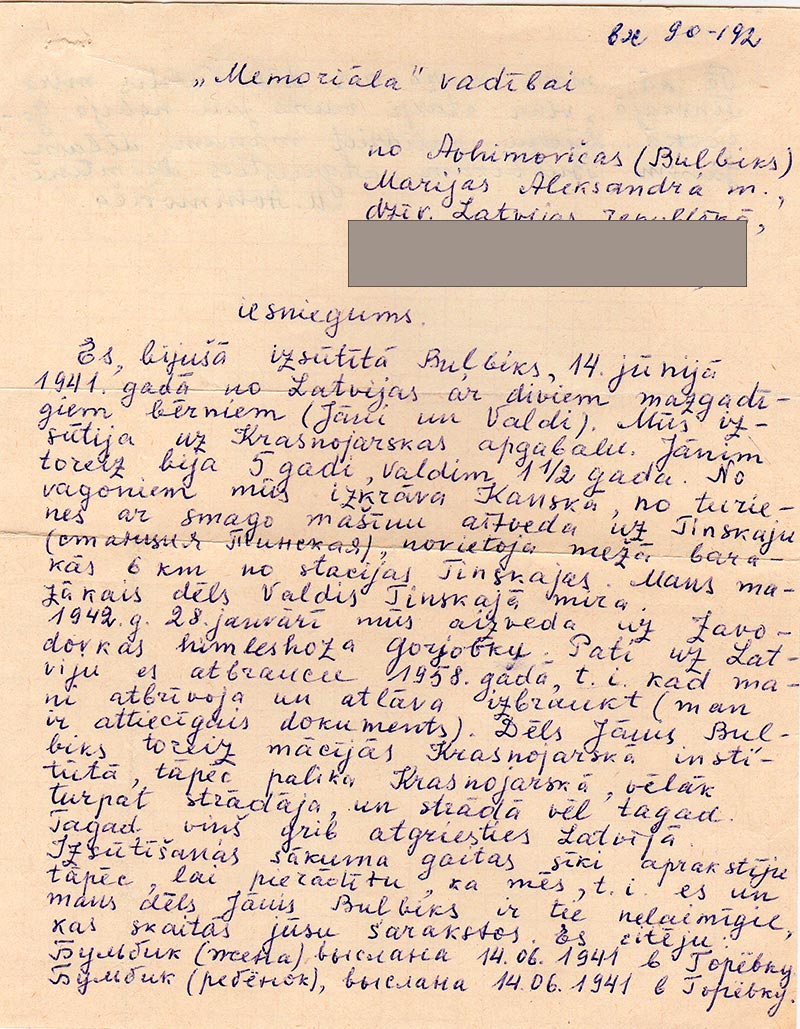 вх 90-192
„Memoriāla" vadībai
no Aohimovičas (Bulbiks)
Marijas Aleksandra m.,
dzīv. Latvijas republikā,
iesniegums.
Es, bijušā izsūtītā Buļbiks, 14. jūnijā
1941. gadā no Latvijas ar diviem mazgadī-
giem bērniem (Jāni un Valdi). Mūs iz-
sūtīja uz Krasnojarskas apgabalu. Jānim
toreiz bija 5 gadi, Valdim 1 1/2 gada. No
vagoniem mūs izkrāva Kanskā, no turie-
nes ar smago mašīnu aizveda uz Tinskaju
(станция Тинская), novietoja mežā bara-
kās 6 km no stacijas Tinskajas. Mans ma-
zākais dēls Valdis Tinskajā mira.
1942.g. 28. janvārī mūs aizveda uz Zavo-
dovkas himleshoza Gorjobku. Pati uz Lat-
viju es atbraucu 1958. gadā, t.i. kad ma-
ni atbrīvoja un atļāva izbraukt (man
ir attiecīgais dokuments). Dēls Jānis Bul-
biks toreiz mācījās Krasnojarskā insti-
tūtā, tāpēc palika Krasnojarskā, vēlāk
turpat strādāja, un strādā vēl tagad.
Tagad viņš grib atgriesties Latvijā.
Izsūtīšanas sākuma gaitas sīki aprakstīju
tāpēc, lai pierādītu, ka mēs, t.i. es un
mans dēls Jānis Bulbiks ir tie nelaimīgie,
kas skaitās jūsu sarakstos. Es citēju:
Бульбик (жена), выслана 14.06.1941 в Горёвку.
Бульбик (ребёнок), выслана 14.06.1941 в Горёвку.